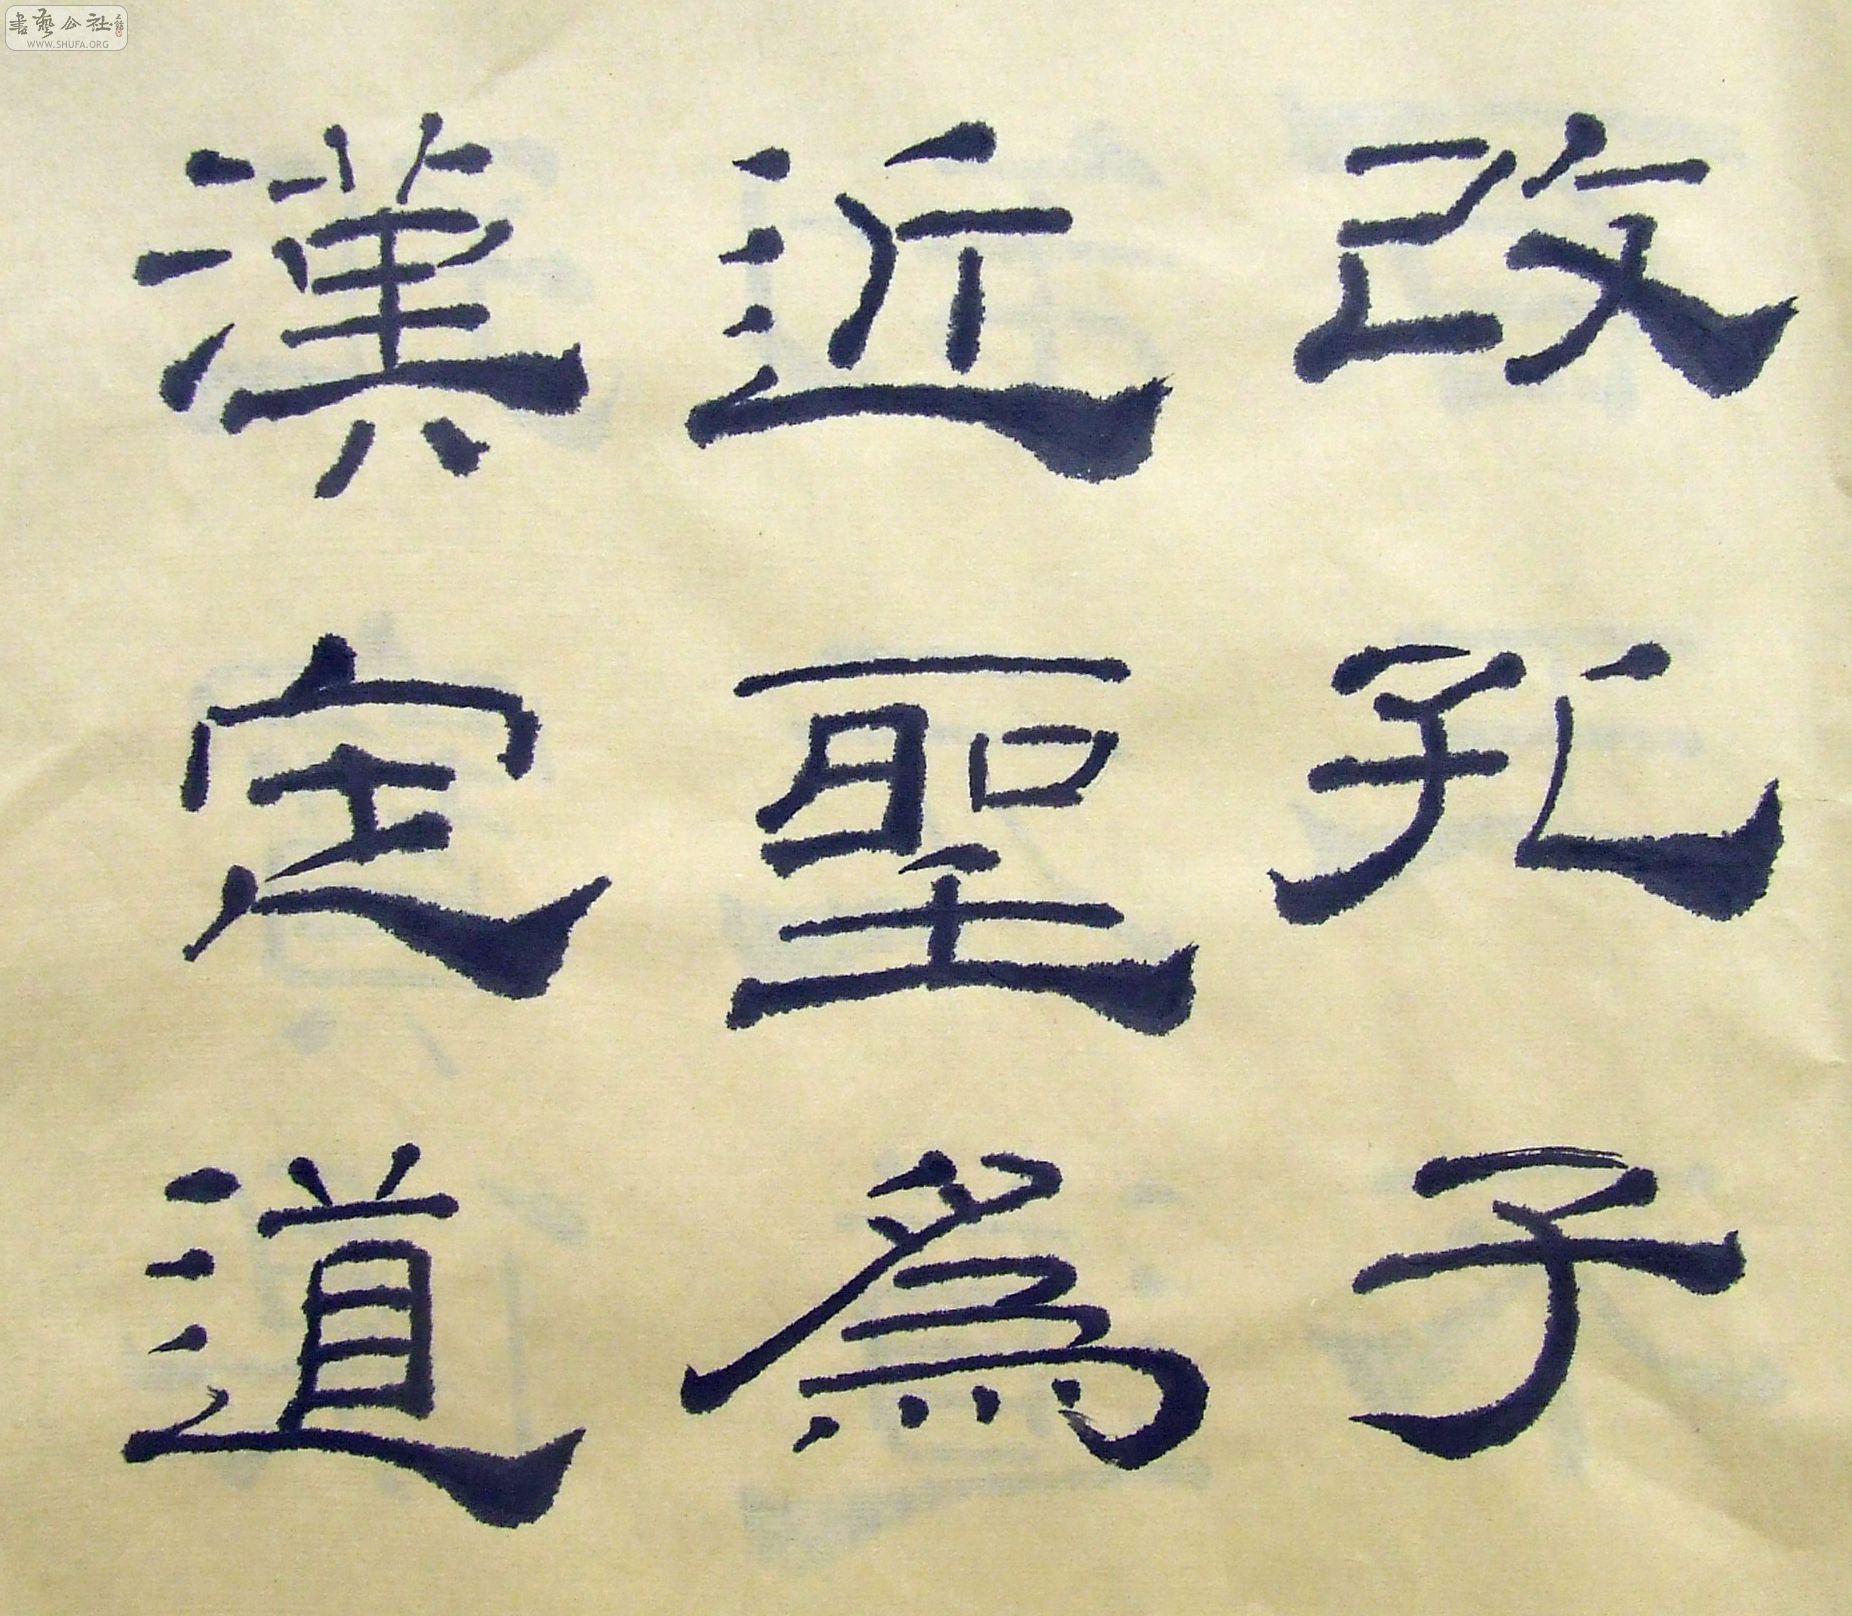 改孔子
近聖為
漢定道
書藝公社
WWW.SHUFA.ORG